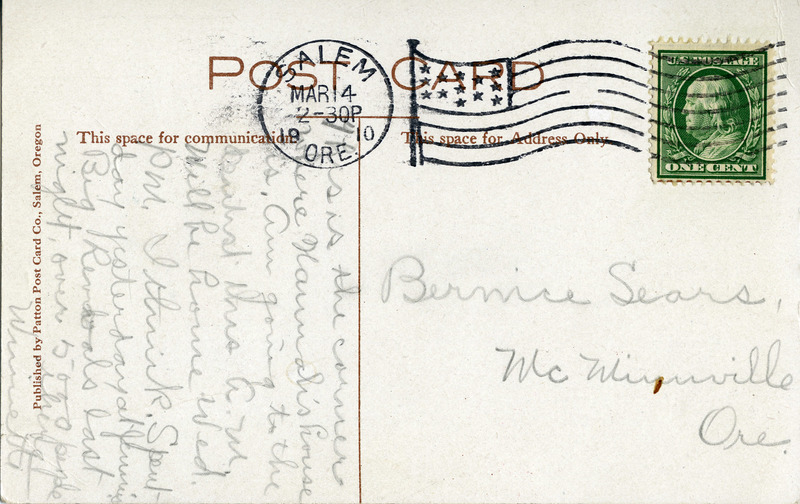 POST CARD
SALEM
MAR 4
2-30P
1910
ORE.
U.S. POSTAGE
ONE CENT
This space for communication
This space for Address Only
Published by Patton Post Card Co., Salem, Oregon
This is the corner
where Hannah's house
is. Am going to the
dentist this A.M.
Will be home Wed.
P.M. I think. Spent
day yesterday at
Big Revivals last
night, over 5000 people
there
Bernice Sears,
McMinnville
Ore.